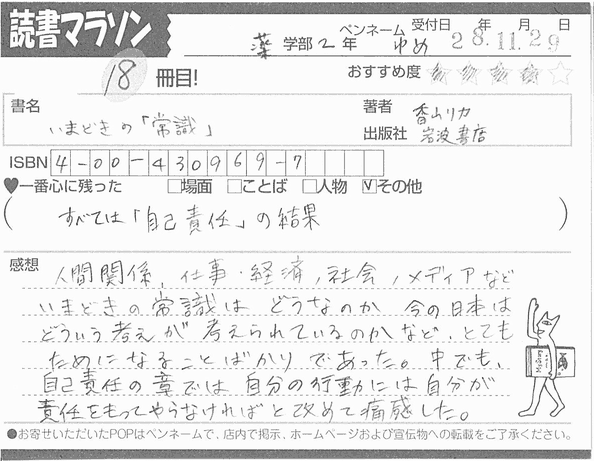 読書マラソン
ペンネーム 受付日 年 月 日
薬 学部 2 年 ゆめ 28.11.29
18 冊目!
おすすめ度 ★★★★☆
書名
いまどきの「常識」
著者 香山リカ
出版社 岩波書店
ISBN 4-00-430969-7
♥一番心に残った □場面 □ことば □人物 ☑その他
(すべては「自己責任」の結果)
感想
人間関係、仕事・経済、社会、メディアなど
いまどきの常識は どうなのか 今の日本は
どういう考えが 考えられているのかなど、とても
ためになることばかり であった。中でも、
自己責任の章では 自分の行動には自分が
責任をもってやらなければと改めて痛感した。
●お寄せいただいたPOPはペンネームで、店内で掲示、ホームページおよび宣伝物への転載をご了承ください。